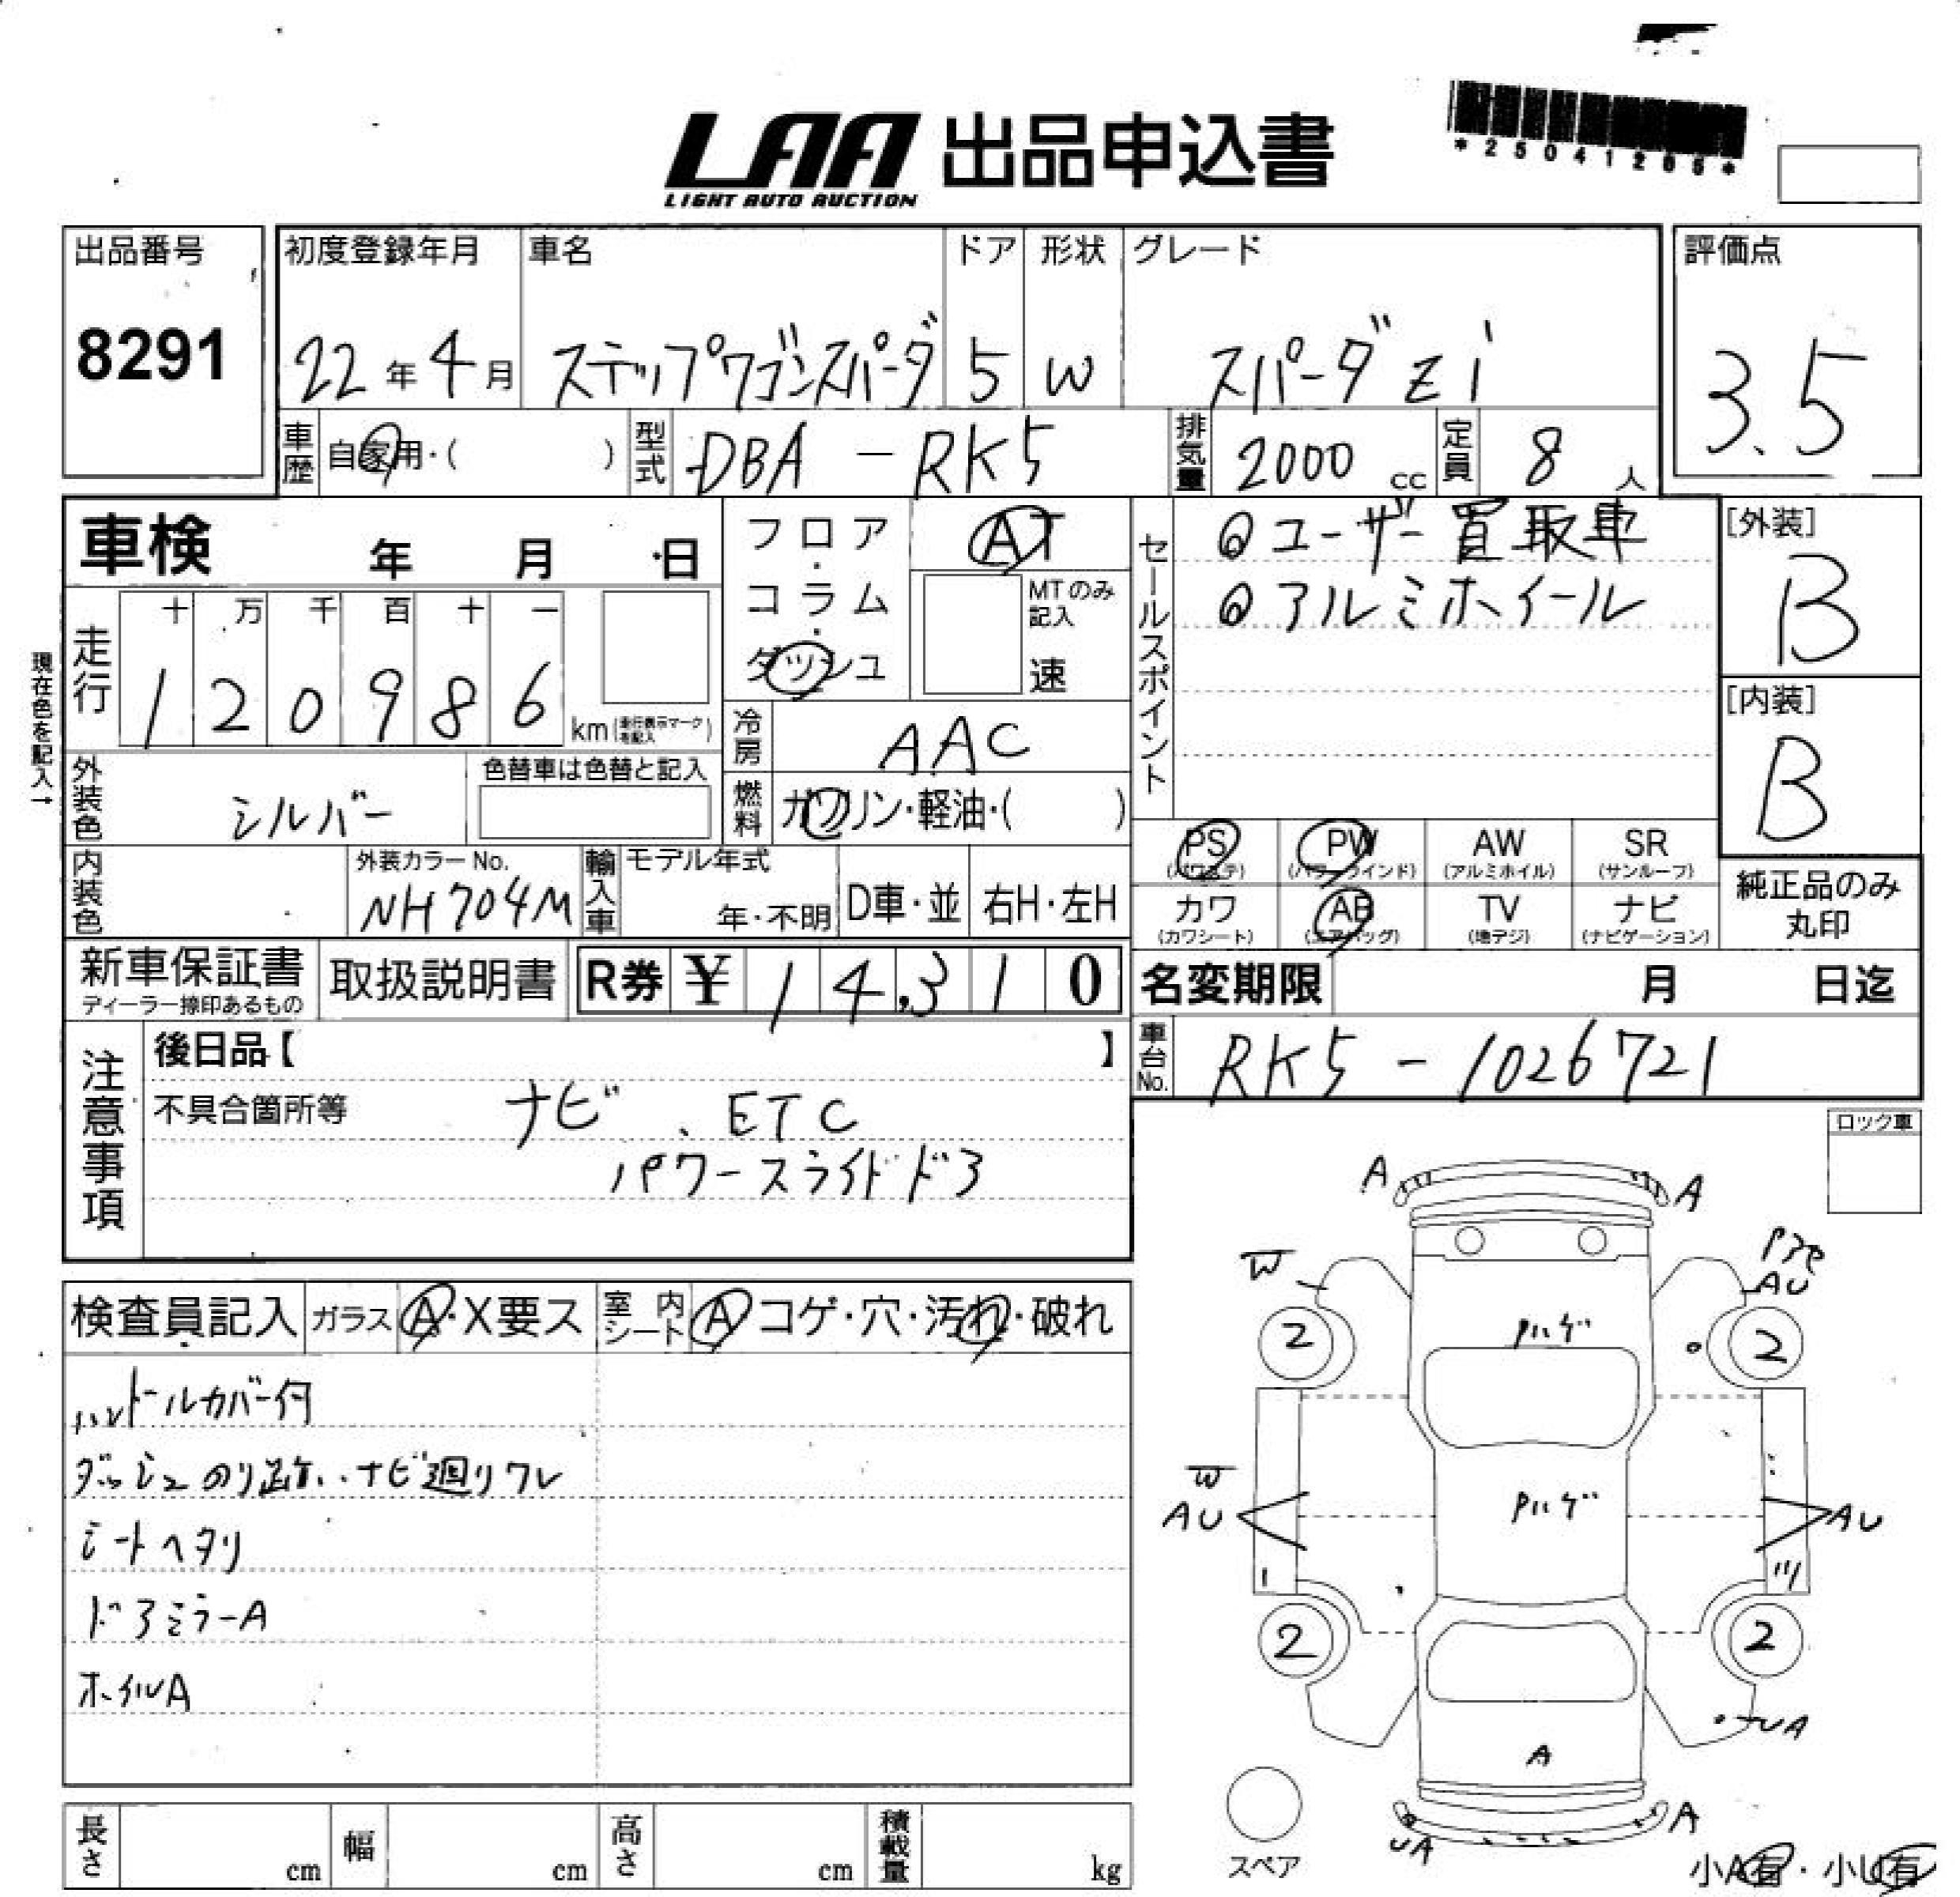 LAA 出品申込書
LIGHT AUTO AUCTION
*25041205*
出品番号
8291
初度登録年月
22年4月
車名
ステップワゴンスパーダ
ドア
5
形状
W
グレード
スパーダ Zi
評価点
3.5
車歴
自家用・( )
型式
DBA-RK5
排気量
2000 cc
定員
8人
車検 年 月 日
フロア・コラム・ダッシュ
AT
MTのみ記入
速
セールスポイント
◎ユーザー買取車
◎アルミホイール
[外装]
B
[内装]
B
現在色を記入→
走行
十 万 千 百 十 一
1 2 0 9 8 6
km(走行表示マークを記入)
冷房
AAC
外装色
シルバー
色替車は色替と記入
燃料
ガソリン・軽油・( )
内装色
外装カラーNo.
NH704M
輸入車
モデル年式
年・不明
D車・並
右H・左H
PS
(パワステ)
PW
(パワーウインド)
AW
(アルミホイル)
SR
(サンルーフ)
カワ
(カワシート)
AB
(エアバッグ)
TV
(地デジ)
ナビ
(ナビゲーション)
純正品のみ
丸印
新車保証書
ディーラー捺印あるもの
取扱説明書
R券 ¥14,310
名変期限 月 日迄
車台No.
RK5-1026721
注意事項
後日品【 】
不具合箇所等
ナビ、ETC
パワースライドドア
ロック車
検査員記入
ガラス A・X要ス
室内シート A コゲ・穴・汚れ・破れ
ハンドルカバー付
ダッシュのり跡、ナビ廻りワレ
シートヘタリ
ドアミラーA
ホイルA
A
A
W
AU
2
2
Pハゲ
W
AU
Pハゲ
AU
2
2
UA
A
UA
A
スペア
小A有・小U有
長さ cm
幅 cm
高さ cm
積載量 kg